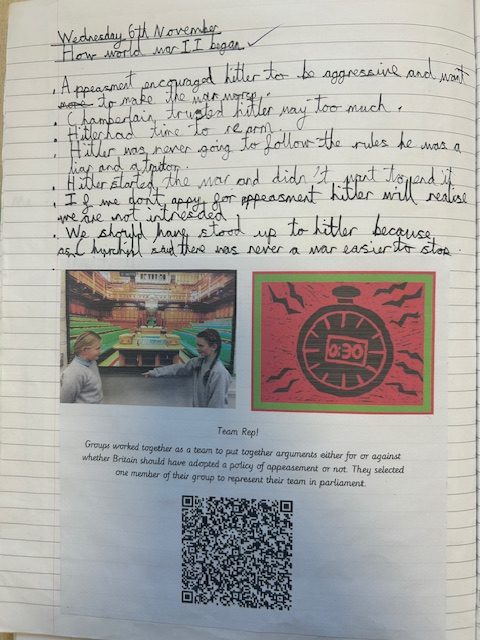 Wednesday 6th November
How world war II began
. Appeasment encouraged hitler to be aggressive and want
to make the war worse.
. Chamberlain trusted hitler way too much.
. Hitler had time to rearm.
. Hitler was never going to follow the rules he was a
liar and a traitor.
. Hitler started the war and didn't want to end it
. If we don't appy for appeasment hitler will realise
we are not intresded.
. We should have stood up to hitler because
as Churchill said there was never a war easier to stop.
0:30
Team Rep!
Groups worked together as a team to put together arguments either for or against
whether Britain should have adopted a policy of appeasement or not. They selected
one member of their group to represent their team in parliament.